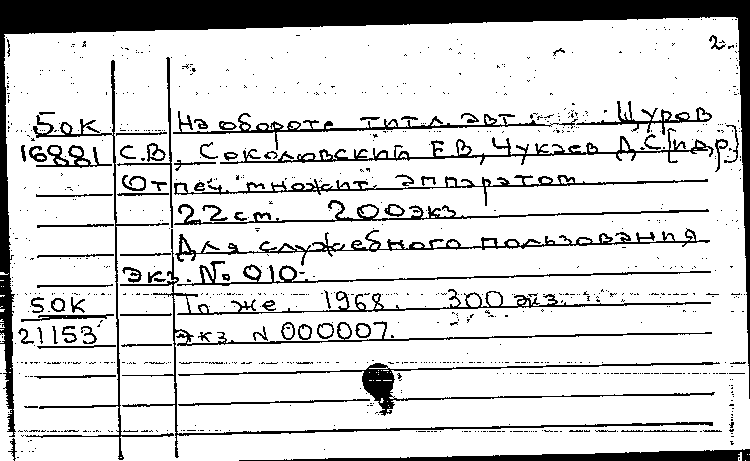 2.
50К На обороте тит. л. авт.: Щуров
16881 С.В., Соколовский Е.В., Чукаев Д.С. [и др.]
Отпеч. множит. аппаратом
22 см. 200 экз.
Для служебного пользования
Экз. № 010.
50К То же. 1968. 300 экз.
21153 Экз. N 000007.